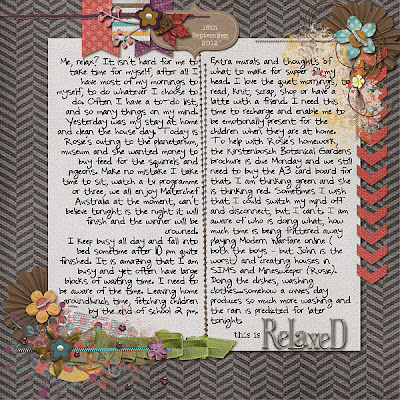 18th
September
2012
Me, relax? It isn't hard for me to
take time for myself, after all I
have most of my mornings to
myself, to do whatever I choose to
do. Often I have a to-do list,
and so many things on my mind.
Yesterday was my stay at home
and clean the house day. Today is
Rosie's outing to the planetarium,
museum and she wanted money to
buy feed for the squirrels and
pigeons. Make no mistake I take
time to sit, watch a tv programme
or three, we all enjoy Masterchef
Australia at the moment, can't
believe tonight is the night it will
finish and the winner will be
crowned.
I keep busy all day and fall into
bed sometime after 10 pm quite
finished. It is amazing that I am
busy and yet often have large
blocks of waiting time. I need to
be aware of the time. Leaving home
around lunch time, fetching children
by the end of school 2 pm.
Extra murals and thoughts of
what to make for supper in my
head. I love the quiet mornings, to
read, knit, scrap, shop or have a
latte with a friend. I need this
time to recharge and enable me to
be emotionally present for the
children when they are at home.
To help with Rosie's homework,
the Kirstenbosch Botanical Gardens
brochure is due Monday and we still
need to buy the A3 card board for
that. I am thinking green and she
is thinking red. Sometimes I wish
that I could switch my mind off
and disconnect, but I can't. I am
aware of who is doing what, how
much time is being frittered away
playing Modern Warfare online (
both the boys - but John is the
worst) and creating houses in
SIMS and Minesweeper (Rosie).
Doing the dishes, washing
clothes...somehow a wives' day
produces so much more washing and
the rain is predicted for later
tonight.
this is RelaxeD